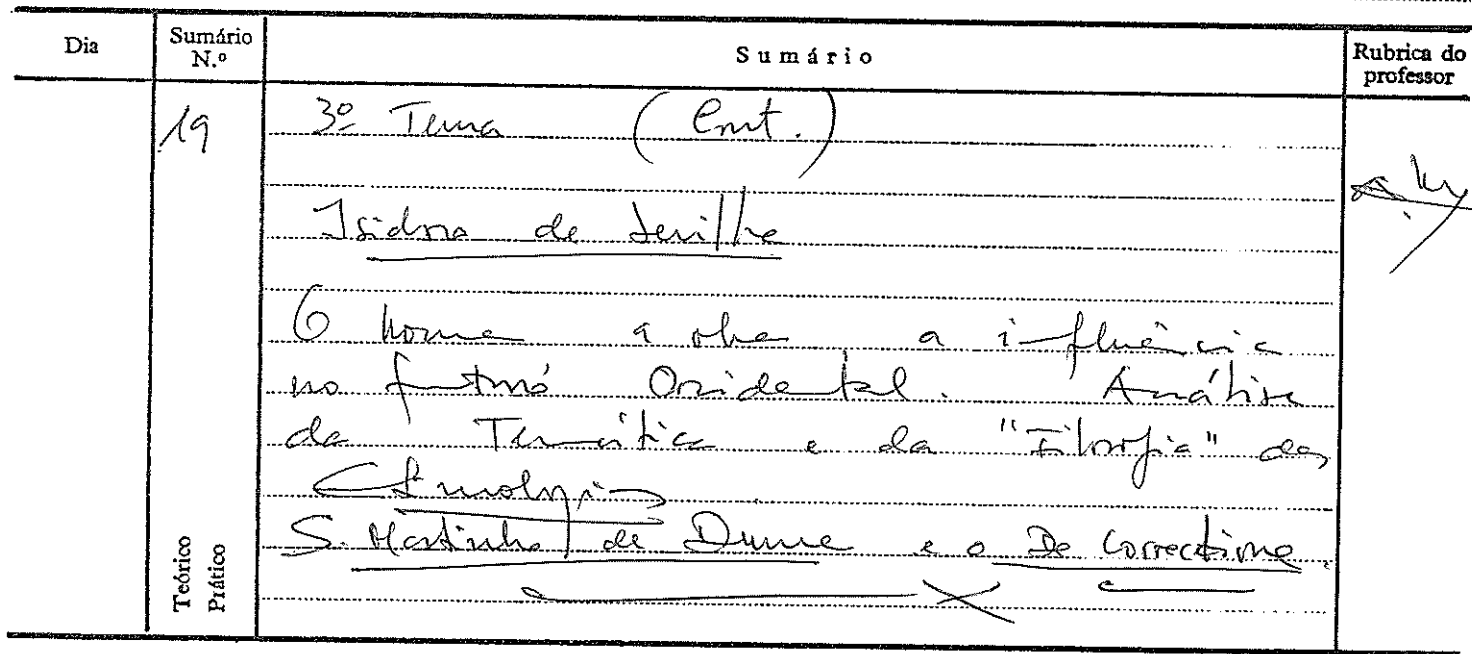 Dia
Sumário N.º
Sumário
Rubrica do professor
19
3º Tema (Cont.)
Isidoro de Sevilha
O homem a obra a influência
no Ocidental. Análise
da Temática e da "Filosofia" das
Etimologias
S. Martinho de Dume e o De Correctione.
Teórico
Prático